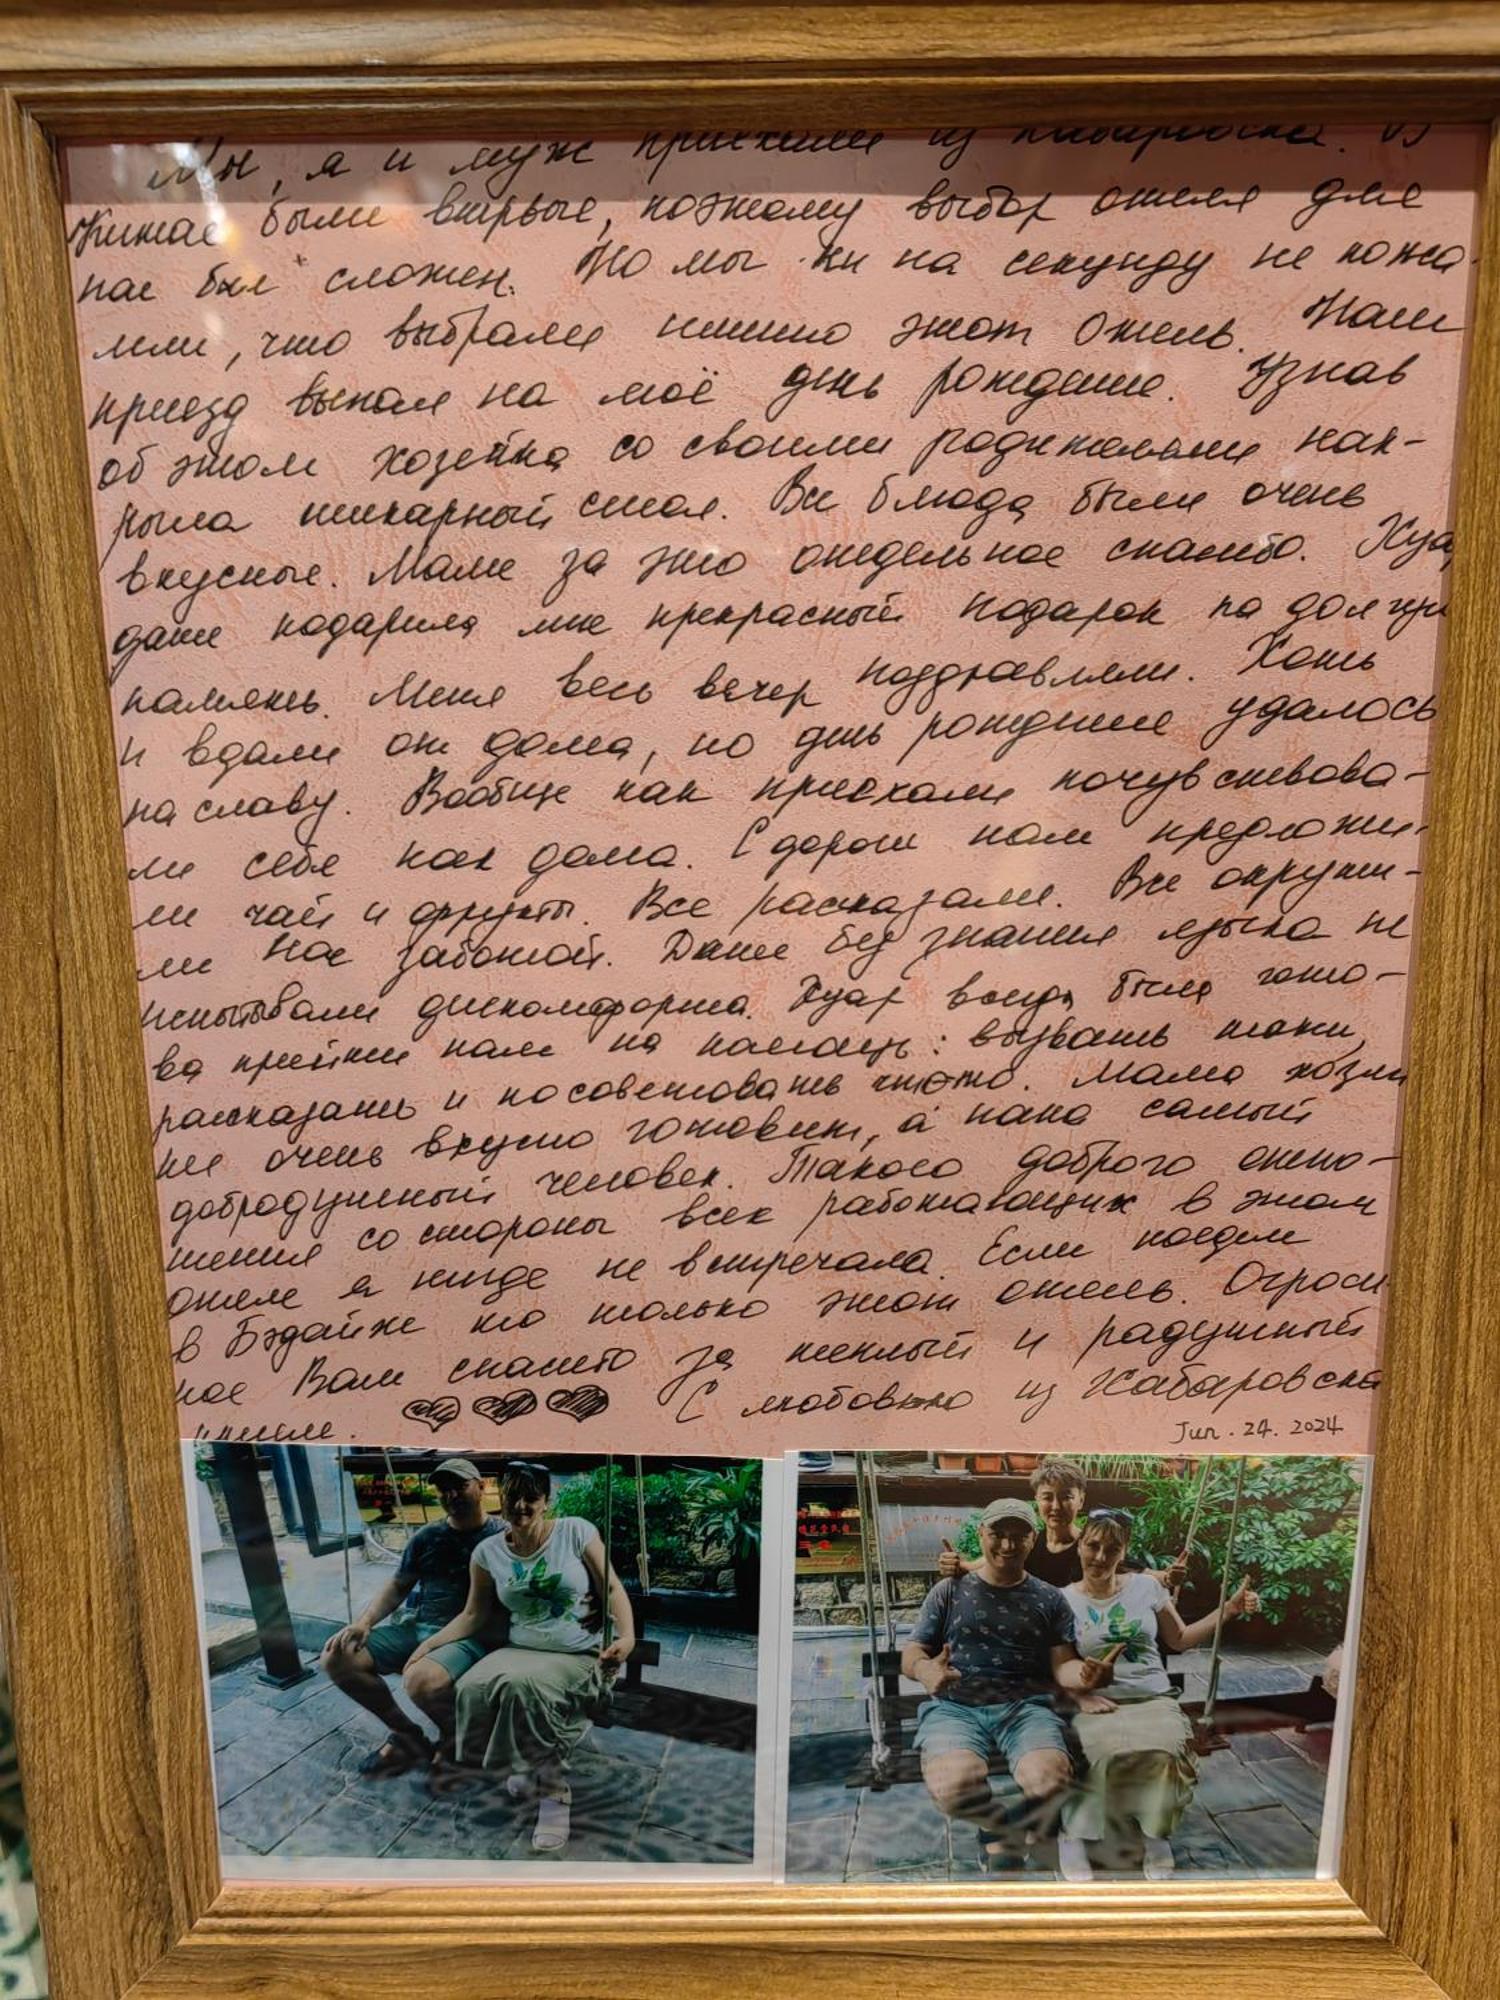 Мы, я и муж приехали из Хабаровска. В
Китае были впервые, поэтому выбор отеля для
нас был сложен. Но мы ни на секунду не пожа-
лели, что выбрали именно этот отель. Наш
приезд выпал на моё день рождение. Узнав
об этом хозейка со своими родителями нак-
рыла шикарный стол. Все блюда были очень
вкусные. Маме за это отдельное спасибо. Хуа,
даже подарила мне прекрасный подарок на долгую
память. Меня весь вечер поздравляли. Хоть
и вдали от дома, но день рождение удалось
на славу. Вообще как приехали почувствова-
ли себя как дома. С дороги нам предложи-
ли чай и фрукты. Все рассказали. Все окружи-
ли нас заботой. Даже без знания языка не
испытывали дискомфорта. всегда была гото-
ва прийти нам на помощь: вызвать такси,
рассказать и посоветовать что-то. Мама хозяй
ке очень вкусно готовит, а папа самый
добродушный человек. Такого доброго отно-
шения со стороны всех работающих в этом
отеле я нигде не встречала. Если поедем
в Бэдайхе то только этот отель. Огром
ное Вам спасибо за теплый и радушный
прием. С любовью из Хабаровска
Jun. 24. 2024